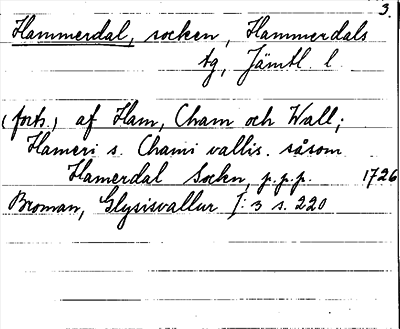 3.
Hammerdal, socken, Hammerdals
tg, Jämtl. l.
(forts.) af Ham, Cham och Wall;
Hameri s. Chami vallis. såsom
Hamerdal Sockn, p.p.p. 1726
Broman, Glysisvallur I: 3 s. 220